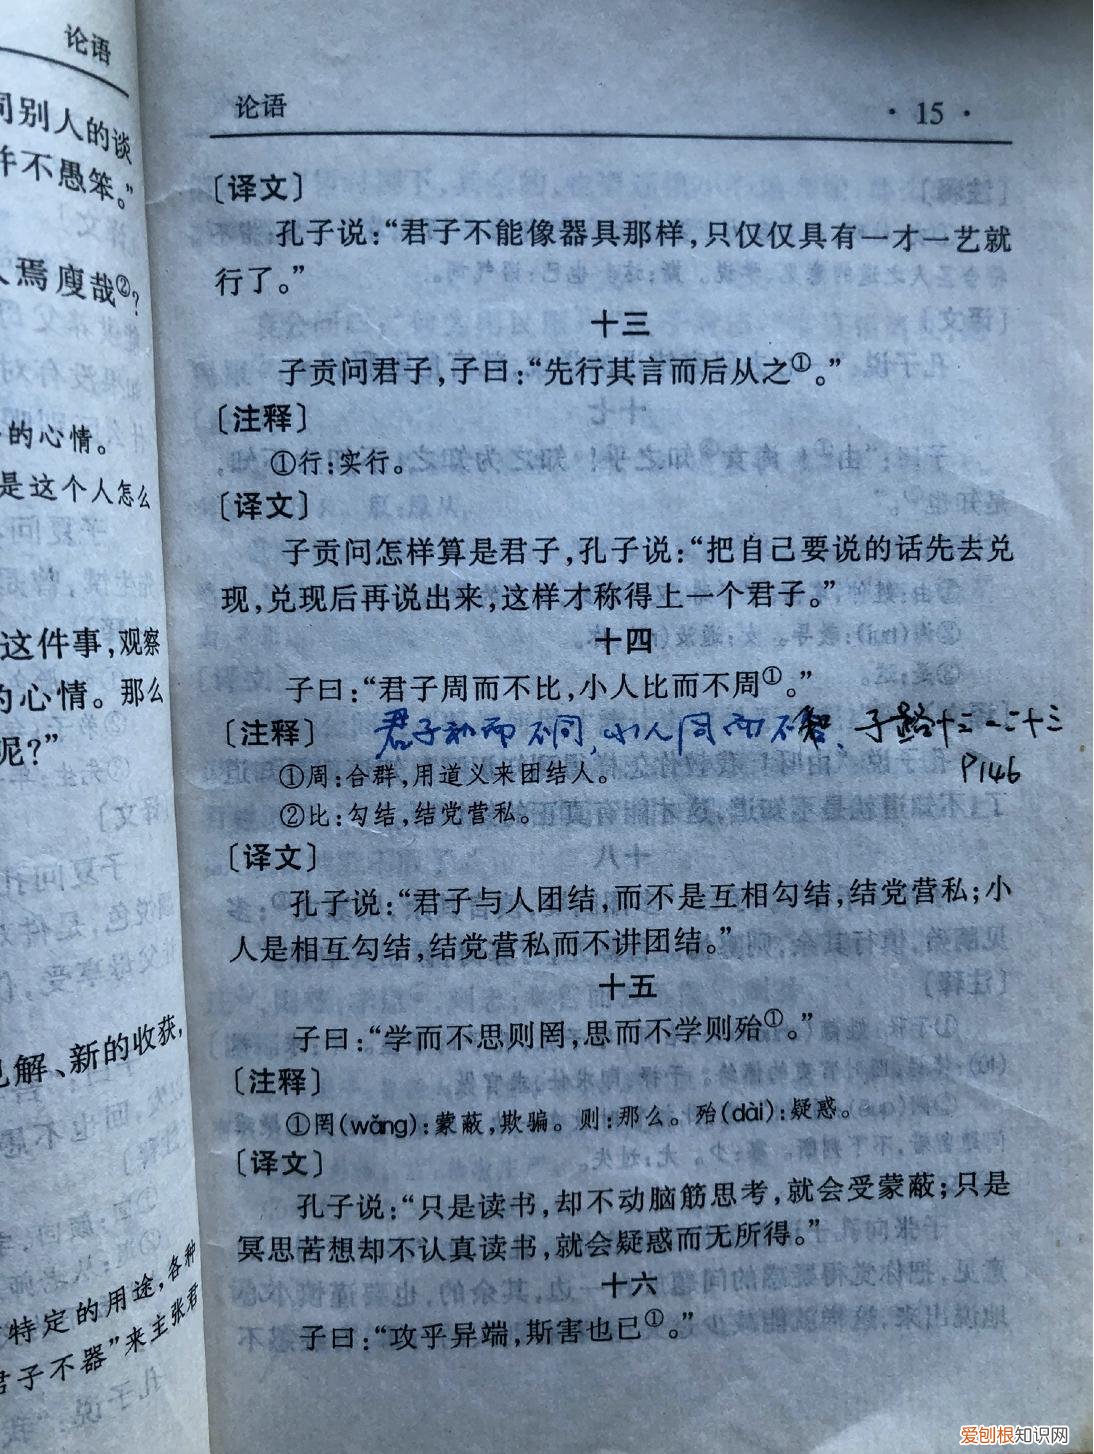 论语
同别人的谈
并不愚笨。”
人焉廋哉②?
的心情。
是这个人怎么
这件事,观察
的心情。那么
呢?”
见解、新的收获,
特定的用途,各种
君子不器”来主张君
论语
·15·
〔译文〕
孔子说:“君子不能像器具那样,只仅仅具有一才一艺就
行了。”
十三
子贡问君子,子曰:“先行其言而后从之①。”
〔注释〕
①行:实行。
〔译文〕
子贡问怎样算是君子,孔子说:“把自己要说的话先去兑
现,兑现后再说出来,这样才称得上一个君子。”
十四
子曰:“君子周而不比,小人比而不周①。”
〔注释〕
君子和而不同,小人同而不和、子路十三-二十三
P146
①周:合群,用道义来团结人。
②比:勾结,结党营私。
〔译文〕
孔子说:“君子与人团结,而不是互相勾结,结党营私;小
人是相互勾结,结党营私而不讲团结。”
十五
子曰:“学而不思则罔,思而不学则殆①。”
〔注释〕
①罔(wǎng):蒙蔽,欺骗。则:那么。殆(dài):疑惑。
〔译文〕
孔子说:“只是读书,却不动脑筋思考,就会受蒙蔽;只是
冥思苦想却不认真读书,就会疑惑而无所得。”
十六
子曰:“攻乎异端,斯害也已①。”
爱刨根知识网